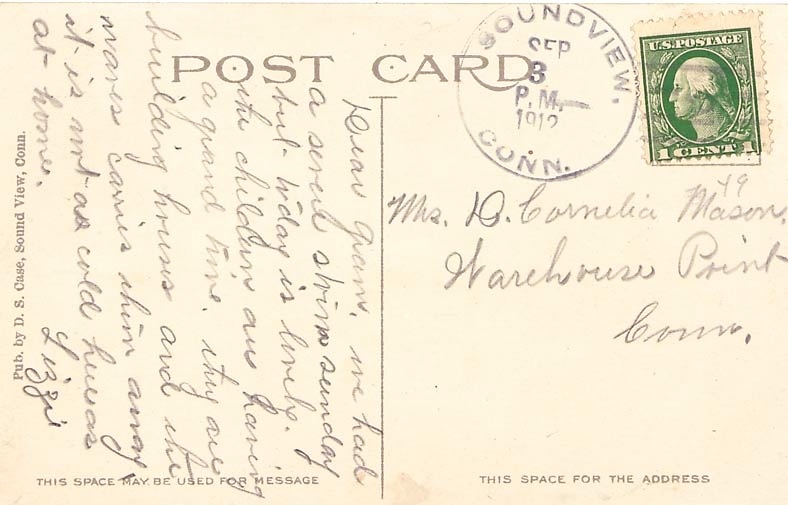 POST CARD
SOUNDVIEW,
SEP
3
P.M.
1912
CONN.
U.S. POSTAGE
1 CENT 1
Dear Gram. we had
a severe storm sunday
but today is lovely.
the children are having
a grand time. they are
building houses and the
waves carries them away
it is not as cold here as
at home.
Lizzie
Mrs. D. Cornelia Mason,
49
Warehouse Point
Conn.
Pub. by D. S. Case, Sound View, Conn.
THIS SPACE MAY BE USED FOR MESSAGE
THIS SPACE FOR THE ADDRESS